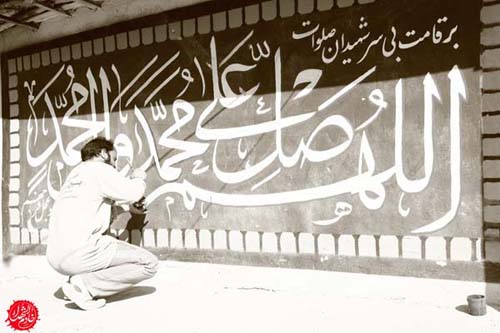 بر قامت بی سر شهیدان صلوات
اللهم صل علی محمد وآل محمد